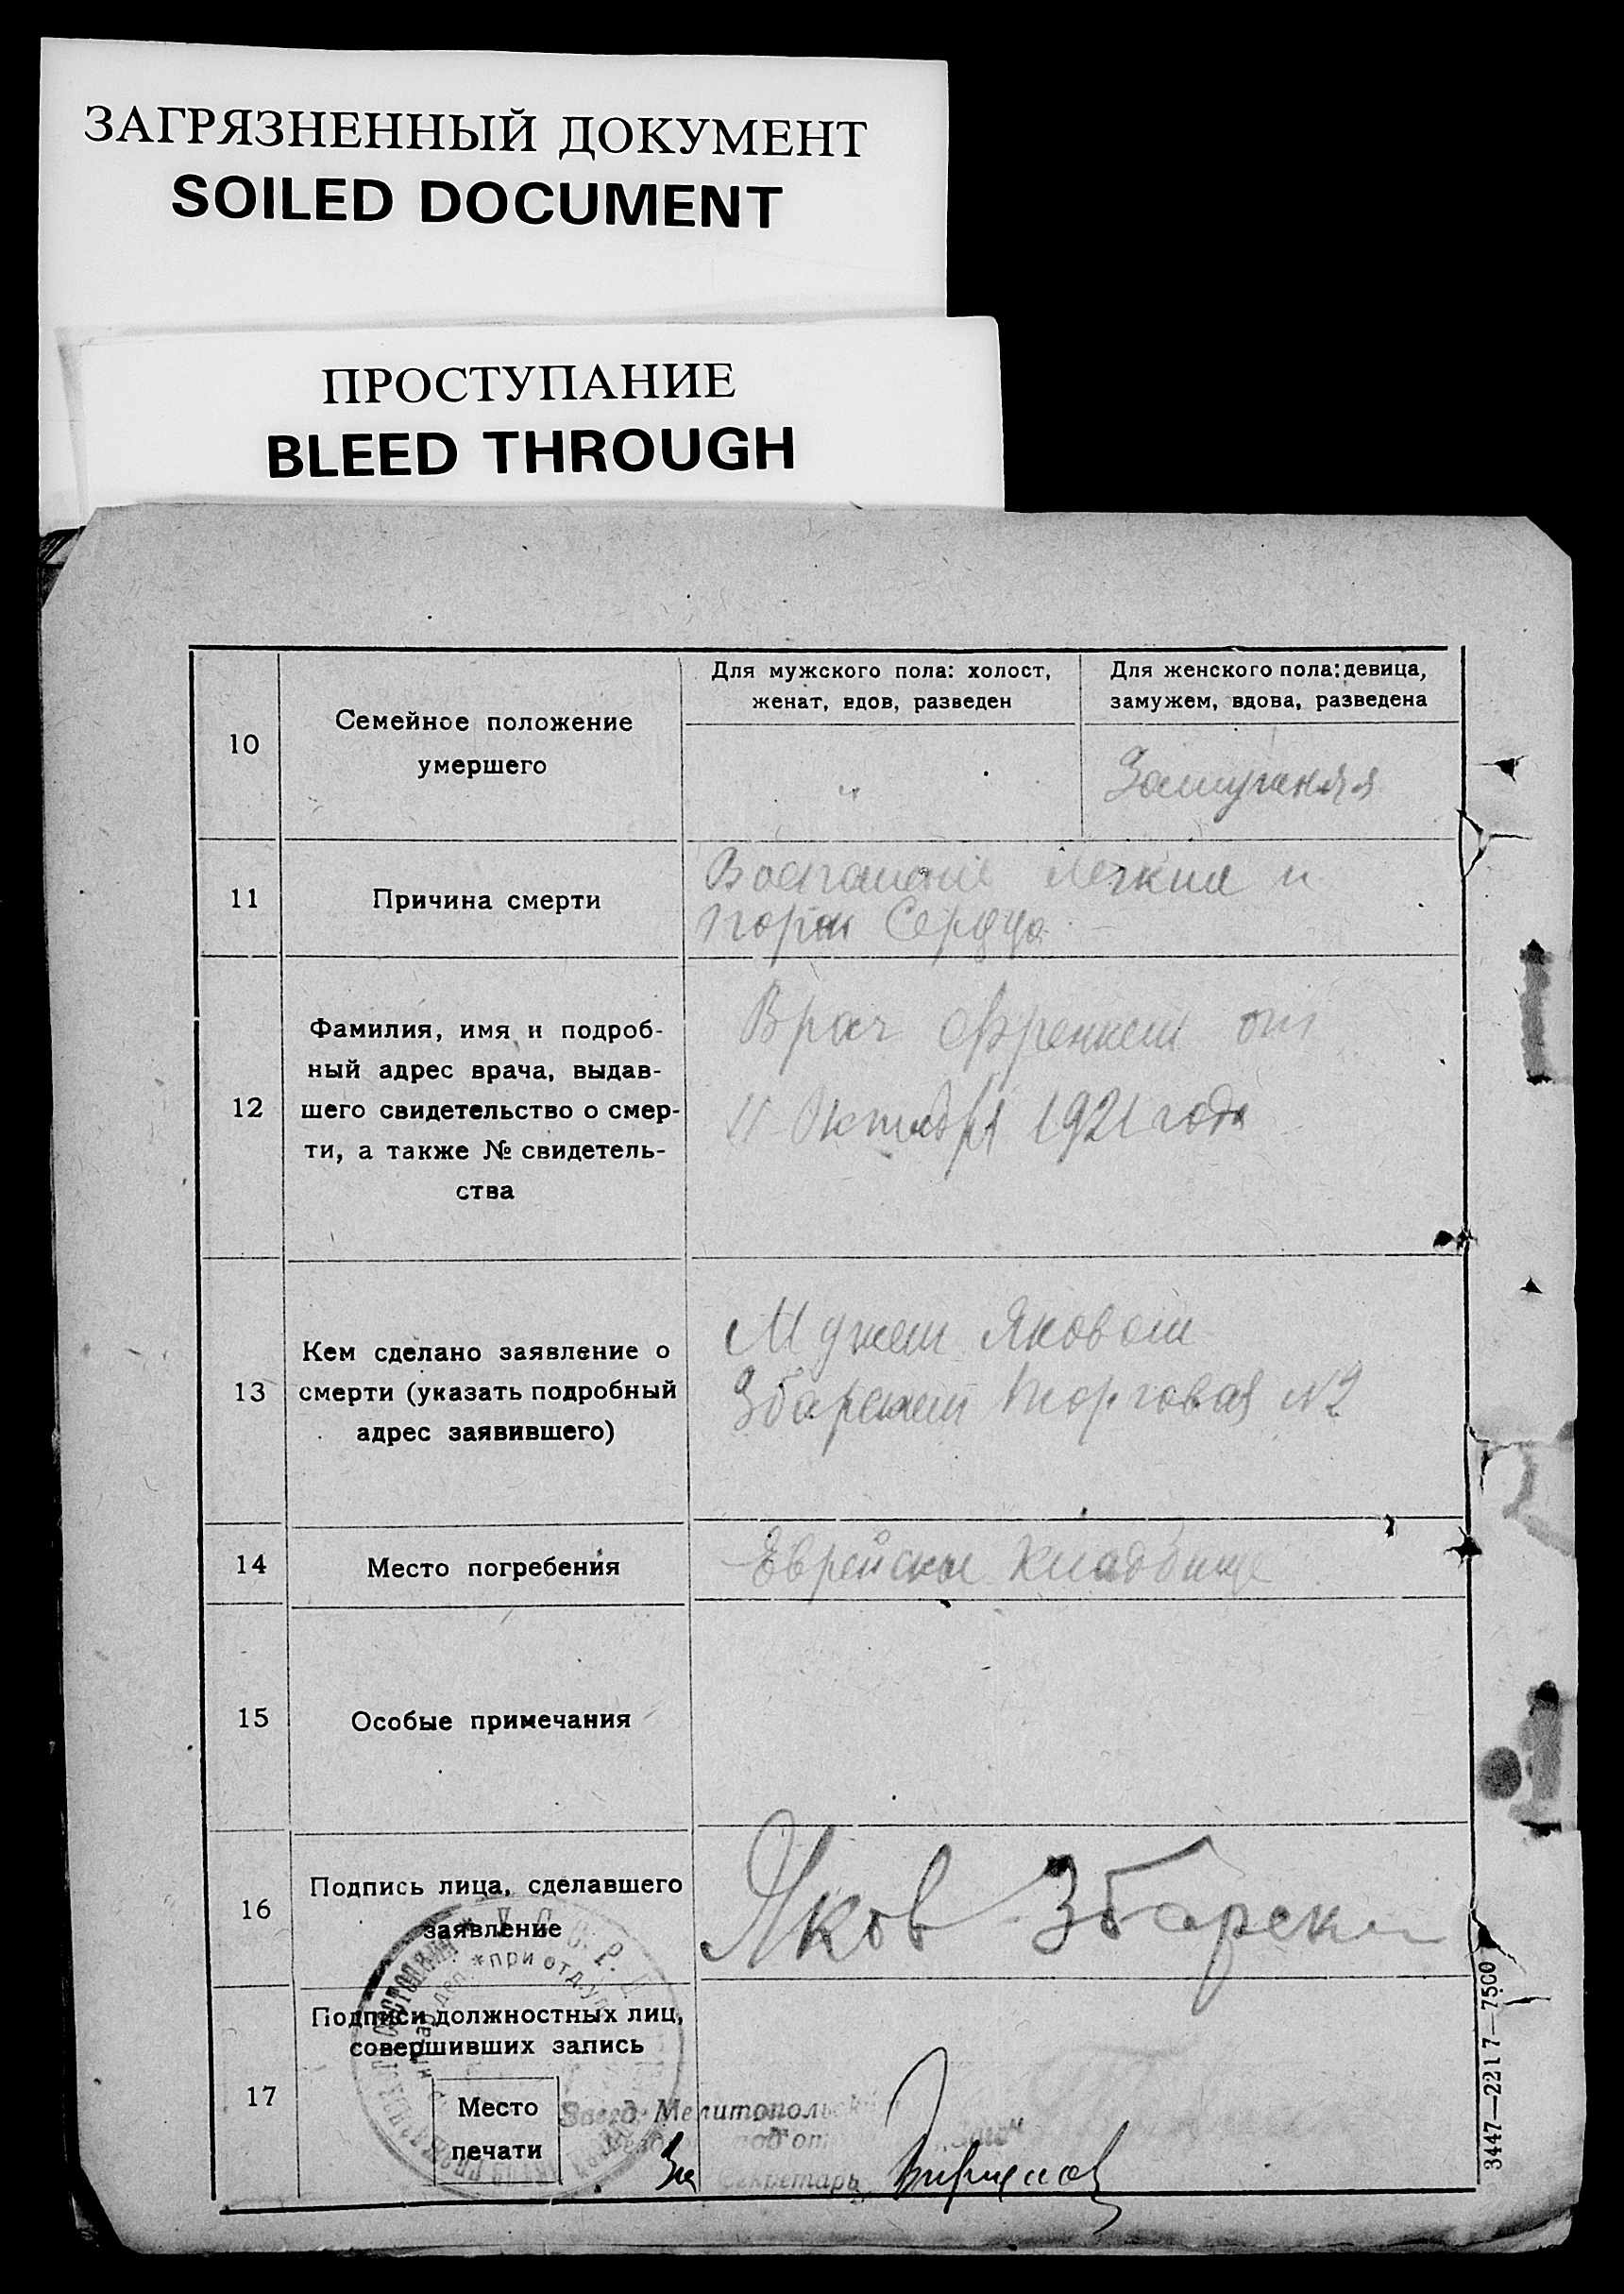 ЗАГРЯЗНЕННЫЙ ДОКУМЕНТ
SOILED DOCUMENT
ПРОСТУПАНИЕ
BLEED THROUGH
10
Семейное положение
умершего
Для мужского пола: холост,
женат, вдов, разведен
"
Для женского пола: девица,
замужем, вдова, разведена
Замужняя
11
Причина смерти
Воспаление легких и
порок Сердца
12
Фамилия, имя и подроб-
ный адрес врача, выдав-
шего свидетельство о смер-
ти, а также № свидетель-
ства
Врач Френкель от
11 Октября 1921 года
13
Кем сделано заявление о
смерти (указать подробный
адрес заявившего)
Мужем Яковом
Збарским Торговая №2
14
Место погребения
Еврейское кладбище
15
Особые примечания
16
Подпись лица, сделавшего
заявление
Яков Збарски
17
Подписи должностных лиц,
совершивших запись
Место
печати
* У. С. С. Р. *
*при отд. упр
Завед. Мелитопольск
под от
"Загс"
За Секретарь
3447—2217—7500